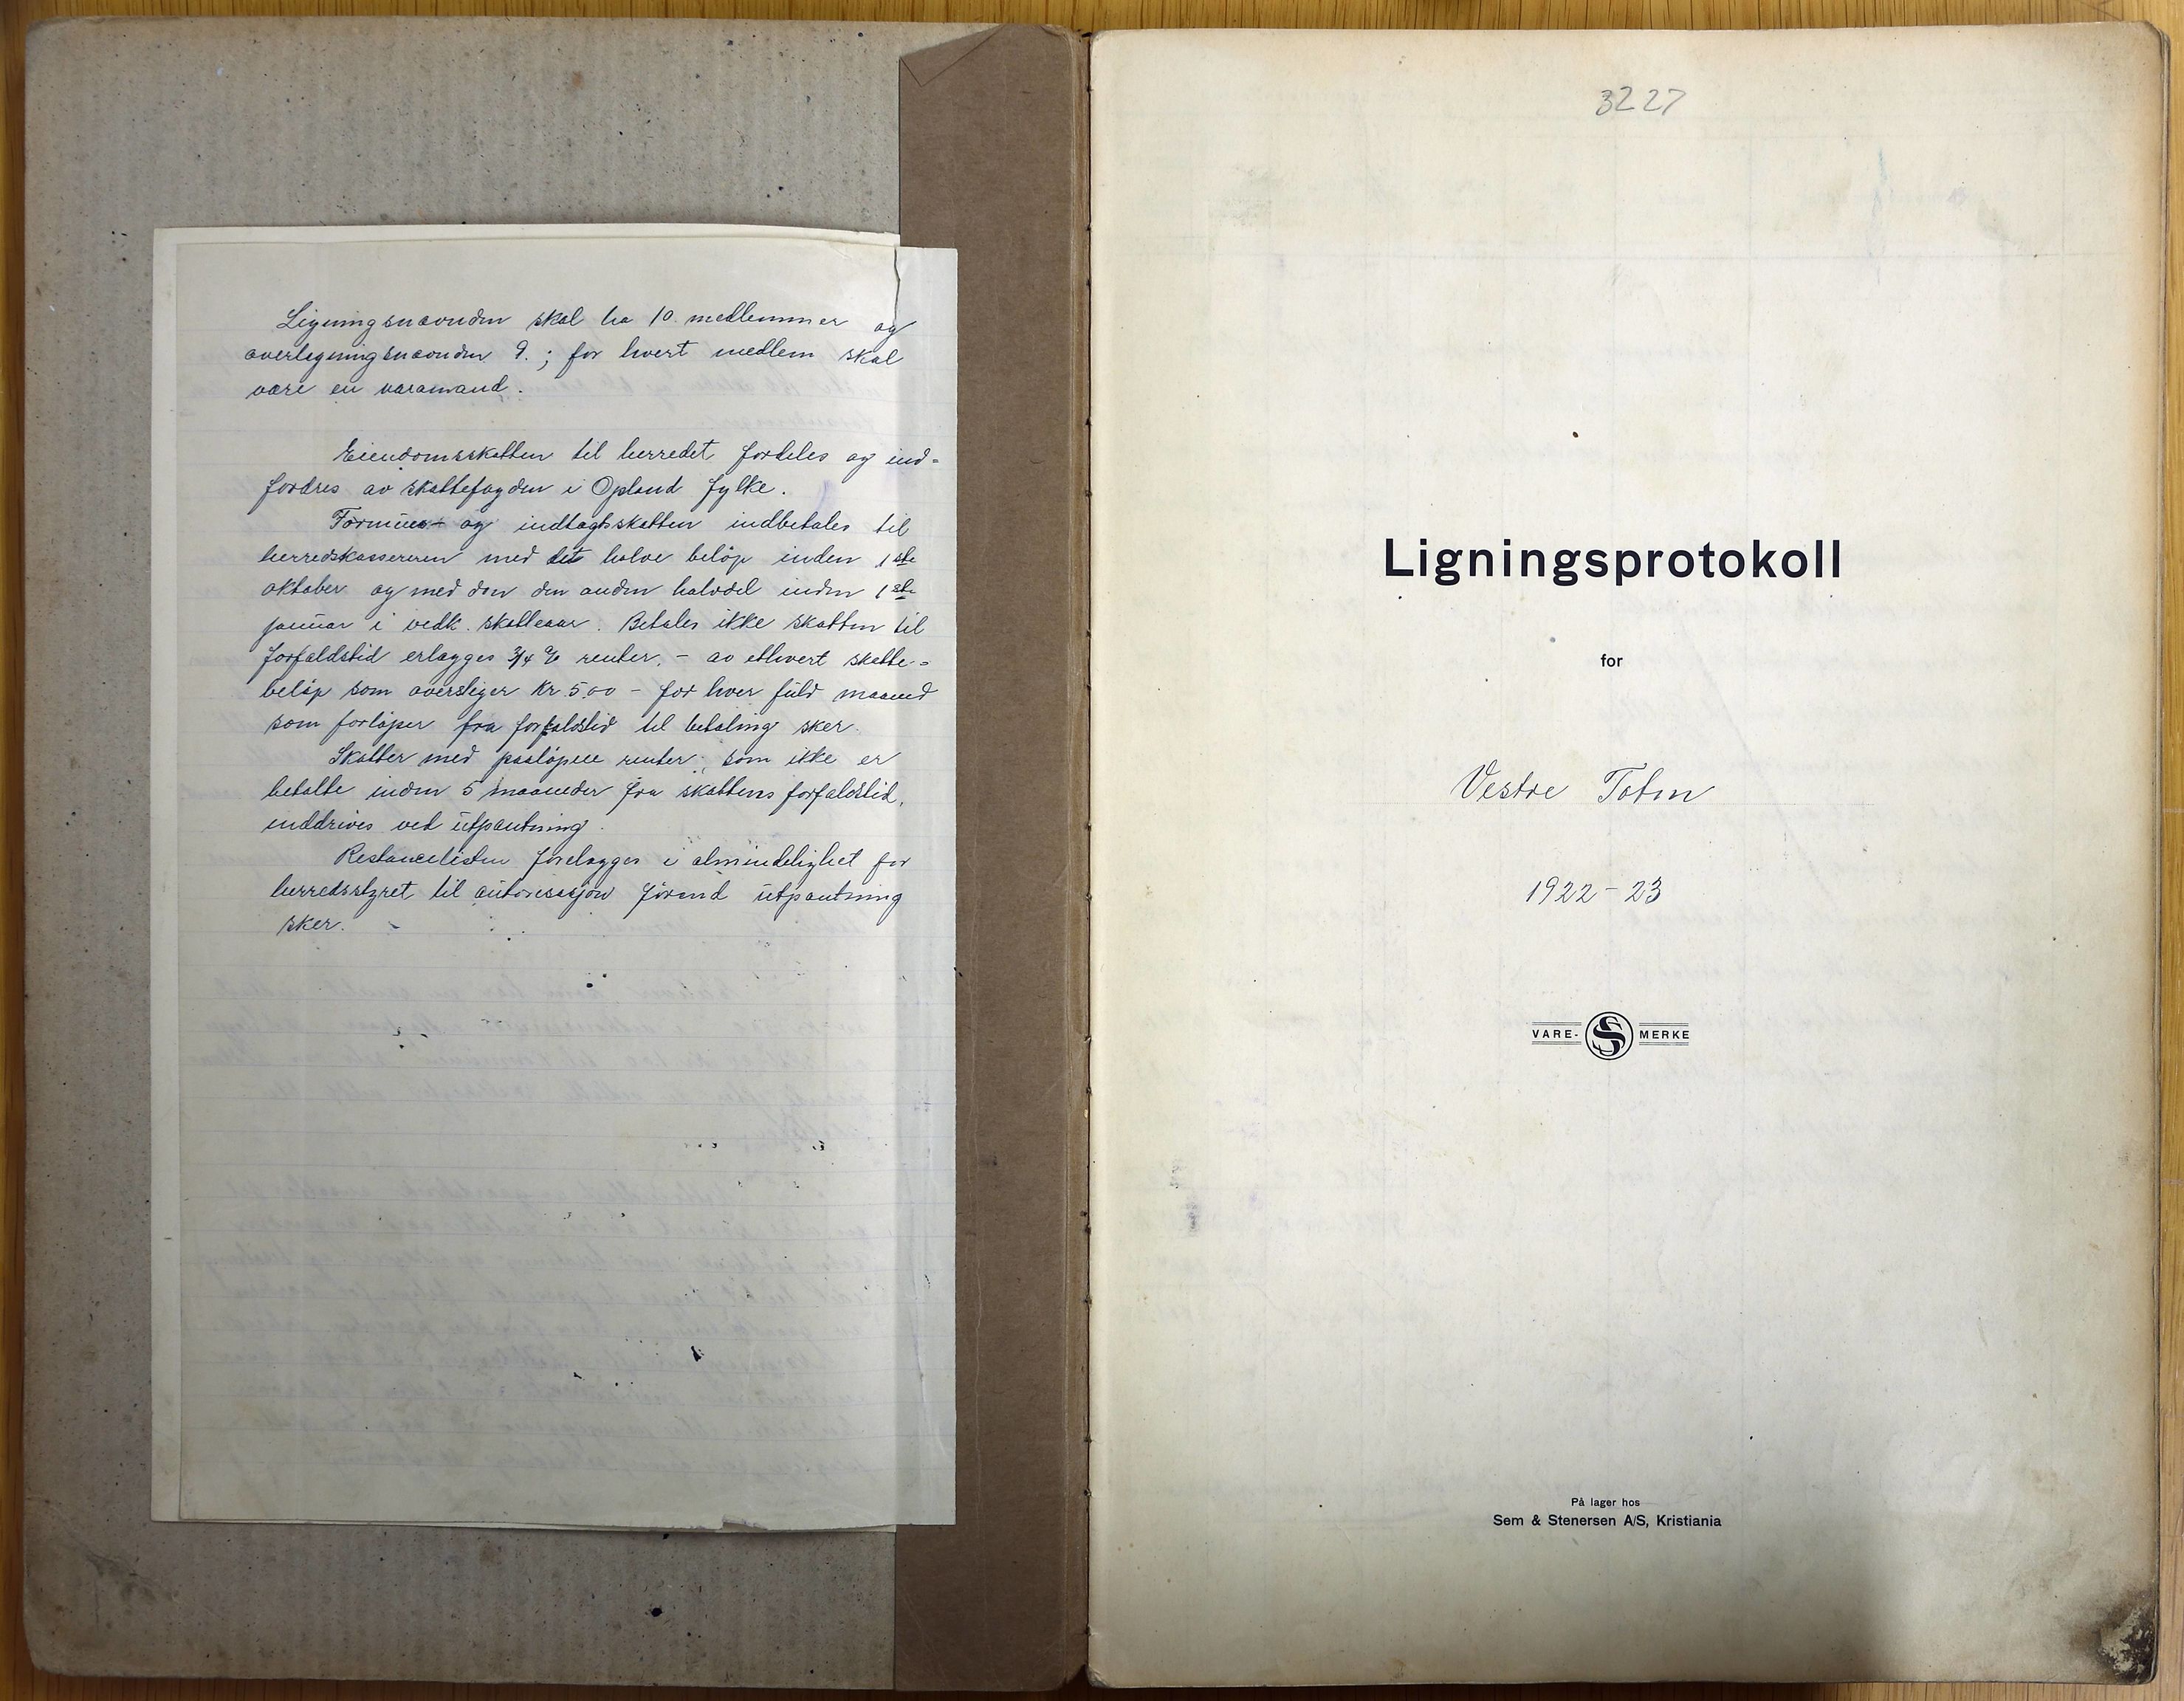 Ligningsnævnden skal ha 10. medlemmer og
overligningsnævnden 9. ; for hvert medlem skal
være en varamand.
Eiendomsskatten til herredet fordeles og ind-
fordres av skattefogden i Opland fylke.
Formues- og indtægtsskatten indbetales til
herredskassereren med det halve beløp inden 1ste
oktober og med den den anden halvdel inden 1ste
januar i vedk. skatteaar. Betales ikke skatten til
forfaldstid erlægges 3/4 % renter, - av ethvert skatte-
beløp som overstiger Kr. 5.00 - for hver fuld maaned
som forløper fra forfaldstid til betaling sker.
Skatter med paaløpne renter, som ikke er
betalte inden 5 maaneder fra skattens forfaldstid,
inddrives ved utpantning.
Restancelisten forelægges i almindelighet for
herredsstyret til autorisasjon førend utpantning
sker.
3227
Ligningsprotokoll
for
Vestre Toten
1922-23
VARE- S MERKE
På lager hos
Sem & Stenersen A/S, Kristiania